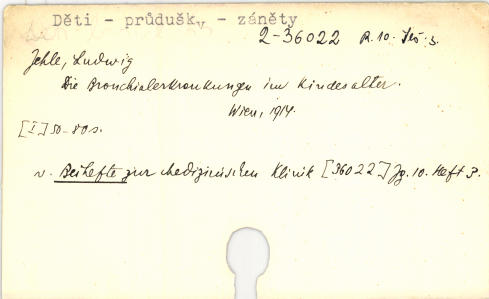 Děti - průdušky - záněty
2-36022 R.10. Seš. 3.
Jehle, Ludwig
Die Bronchialerkrankungen im Kindesalter.
Wien, 1914.
[I] 50-80 s.
v. Beihefte zur Medizinischen Klinik [36022] Jg. 10. Heft 3.